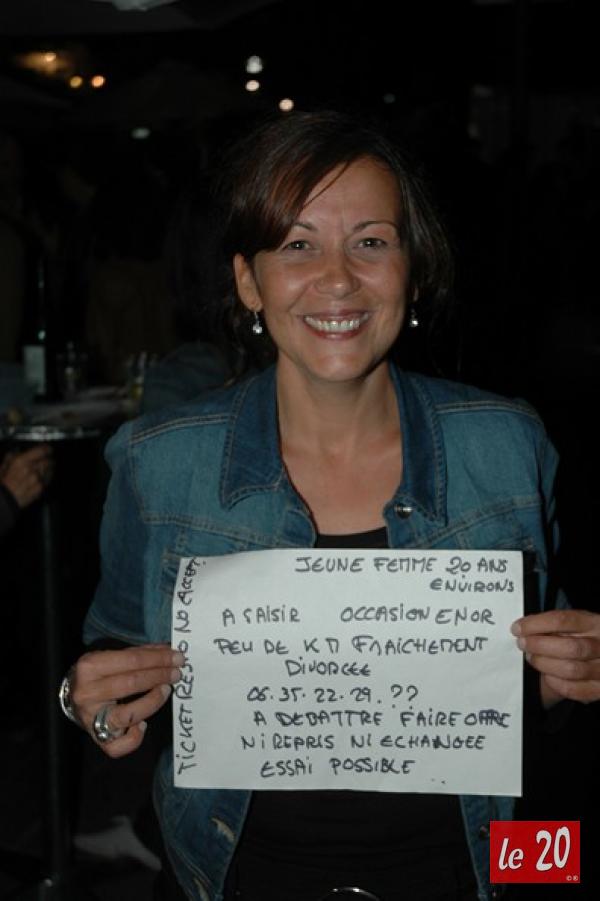 JEUNE FEMME 20 ANS
ENVIRONS
A SAISIR OCCASION EN OR
PEU DE KM FRAICHEMENT
DIVORCEE
06.35.22.29.??
A DEBATTRE FAIRE OFFRE
NI REPRIS NI ECHANGEE
ESSAI POSSIBLE
TICKET RESTO NO ACCEPT
le 20
©®